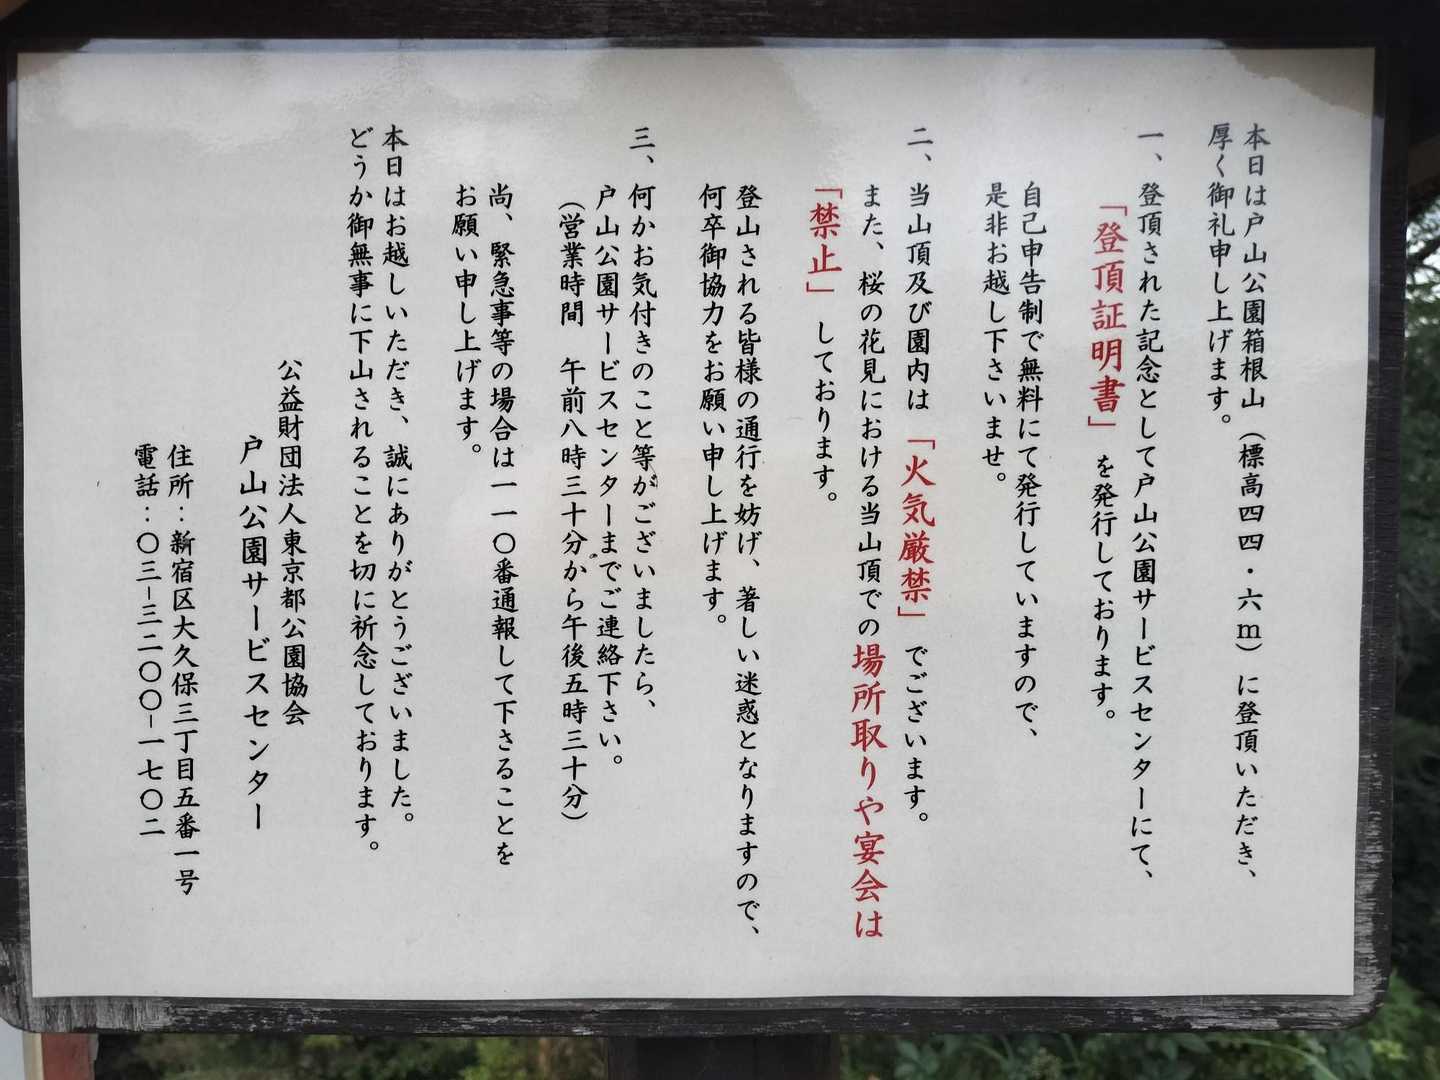 本日は戸山公園箱根山（標高四四・六ｍ）に登頂いただき、
厚く御礼申し上げます。
一、登頂された記念として戸山公園サービスセンターにて、
「登頂証明書」を発行しております。
自己申告制で無料にて発行していますので、
是非お越し下さいませ。
二、当山頂及び園内は「火気厳禁」でございます。
また、桜の花見における当山頂での場所取りや宴会は
「禁止」しております。
登山される皆様の通行を妨げ、著しい迷惑となりますので、
何卒御協力をお願い申し上げます。
三、何かお気付きのこと等がございましたら、
戸山公園サービスセンターまでご連絡下さい。
（営業時間　午前八時三十分から午後五時三十分）
尚、緊急事等の場合は一一〇番通報して下さることを
お願い申し上げます。
本日はお越しいただき、誠にありがとうございました。
どうか御無事に下山されることを切に祈念しております。
公益財団法人東京都公園協会
戸山公園サービスセンター
住所：新宿区大久保三丁目五番一号
電話：〇三－三二〇〇－一七〇二